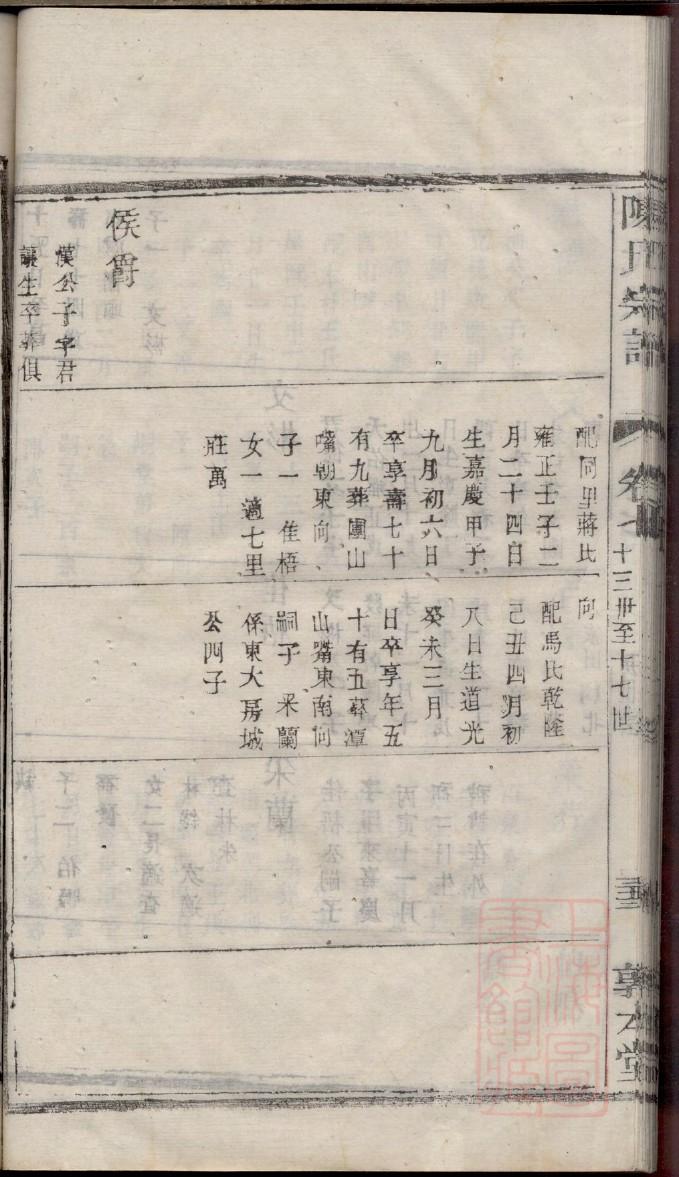 陳氏宗譜
卷七
十三世至十七世
敦本堂
侯爵
漢公子字君
讓生卒葬俱
配同里蔣氏
雍正壬子二
月二十四日
生嘉慶甲子
九月初六日
卒享壽七十
有九葬團山
嘴朝東向
子一 佳梧
女一適七里
莊萬
向
配馬氏乾隆
己丑四月初
八日生道光
癸未三月
日卒享年五
十有五葬潭
山嘴東南向
嗣子 釆蘭
係東大房城
公四子